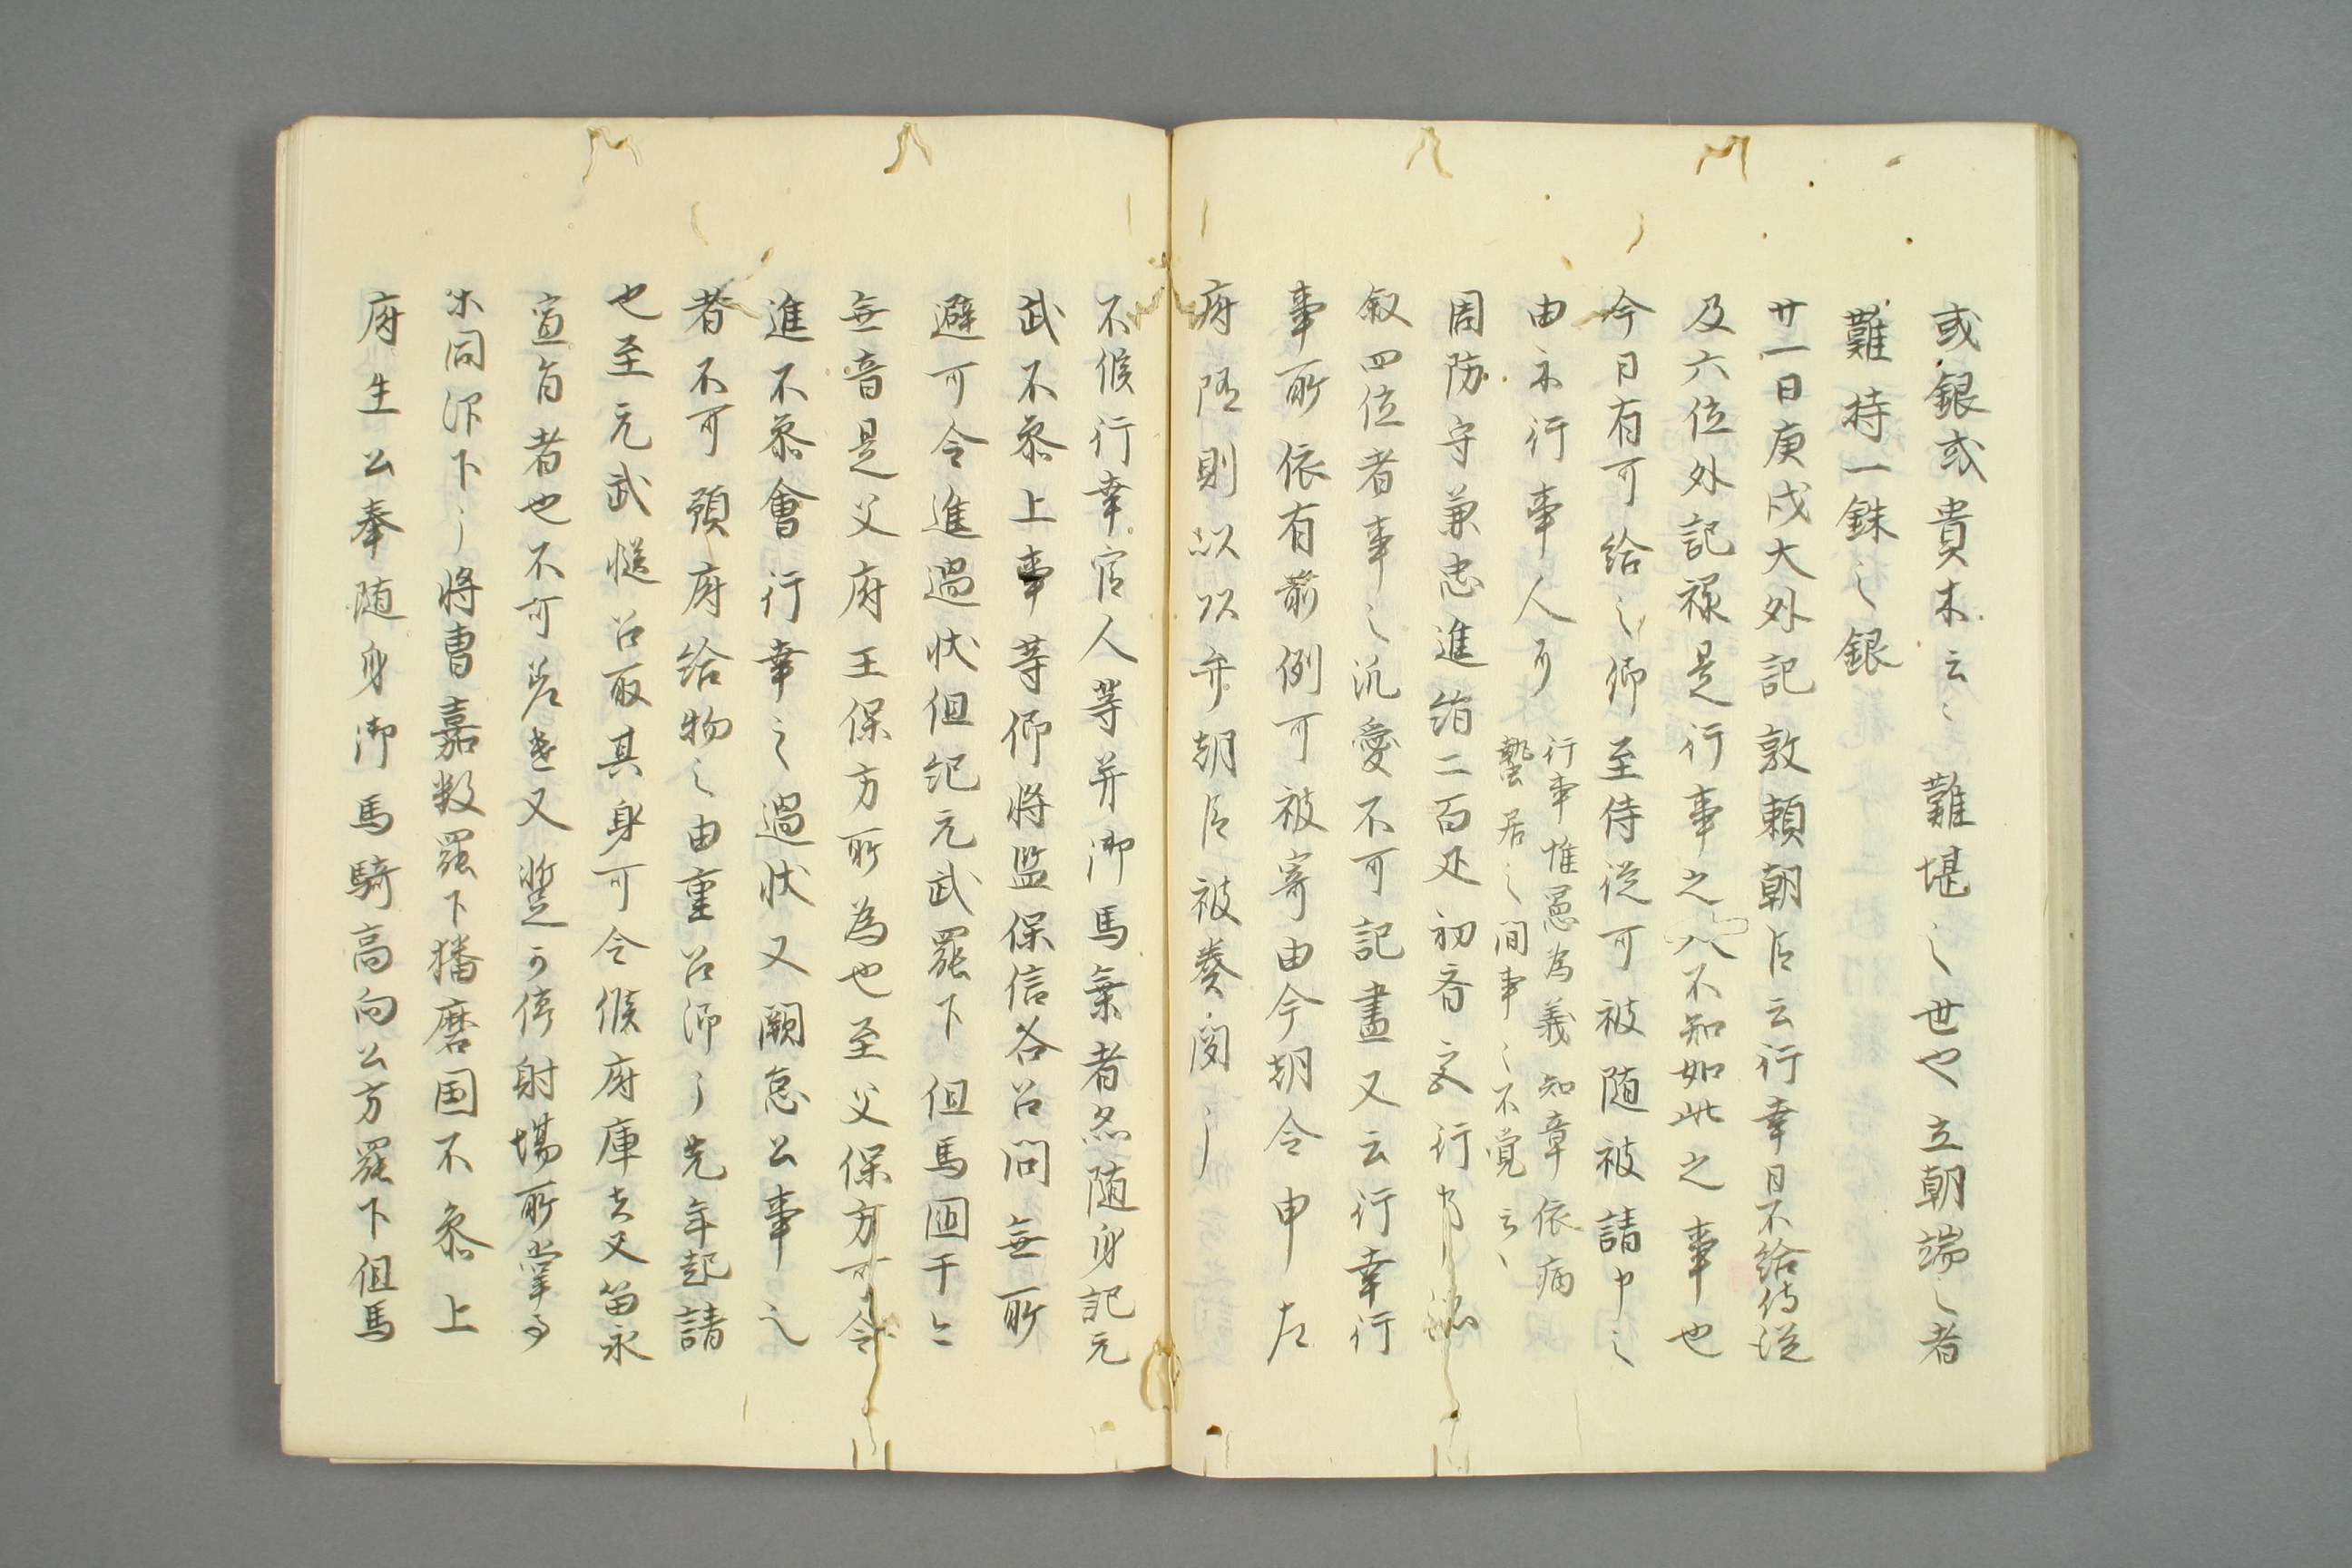 或銀或貴木云々難堪之世也立朝端之者
難持一銖之銀
廿一日庚戌大外記敦頼朝臣云行幸日不給侍従
及六位外記禄是行事之八不知如此之事也
今日有可給之仰至侍従可被随被請申之
由示行事人了
行事惟憲為義知章依病
蟄居之間事々不覚云々
周防守兼忠進絹二百疋初斎
叙四位者事之汎愛不可記盡又云行幸行
事所依有前例可被寄由今朝令申左
府随則以以弁朝臣被奏聞了
不候行幸官人等并御馬乗者然随身記元
武不参上事等仰将監保信各召問無所
避可令進過状但紀元武罷下但馬国干今
無音是父府王保方所為也至父保方可令
進不参會行幸之過状又闕怠公事之
者不可預府給物之由重召仰了先年起請
也至元武慥召取其身可令候府庫者又笛永
宣旨者也不可差遣又暫可停射場所掌事
等同仰下了将曹嘉数罷下播磨国不参上
府生公奉随身御馬騎高向公方罷下但馬